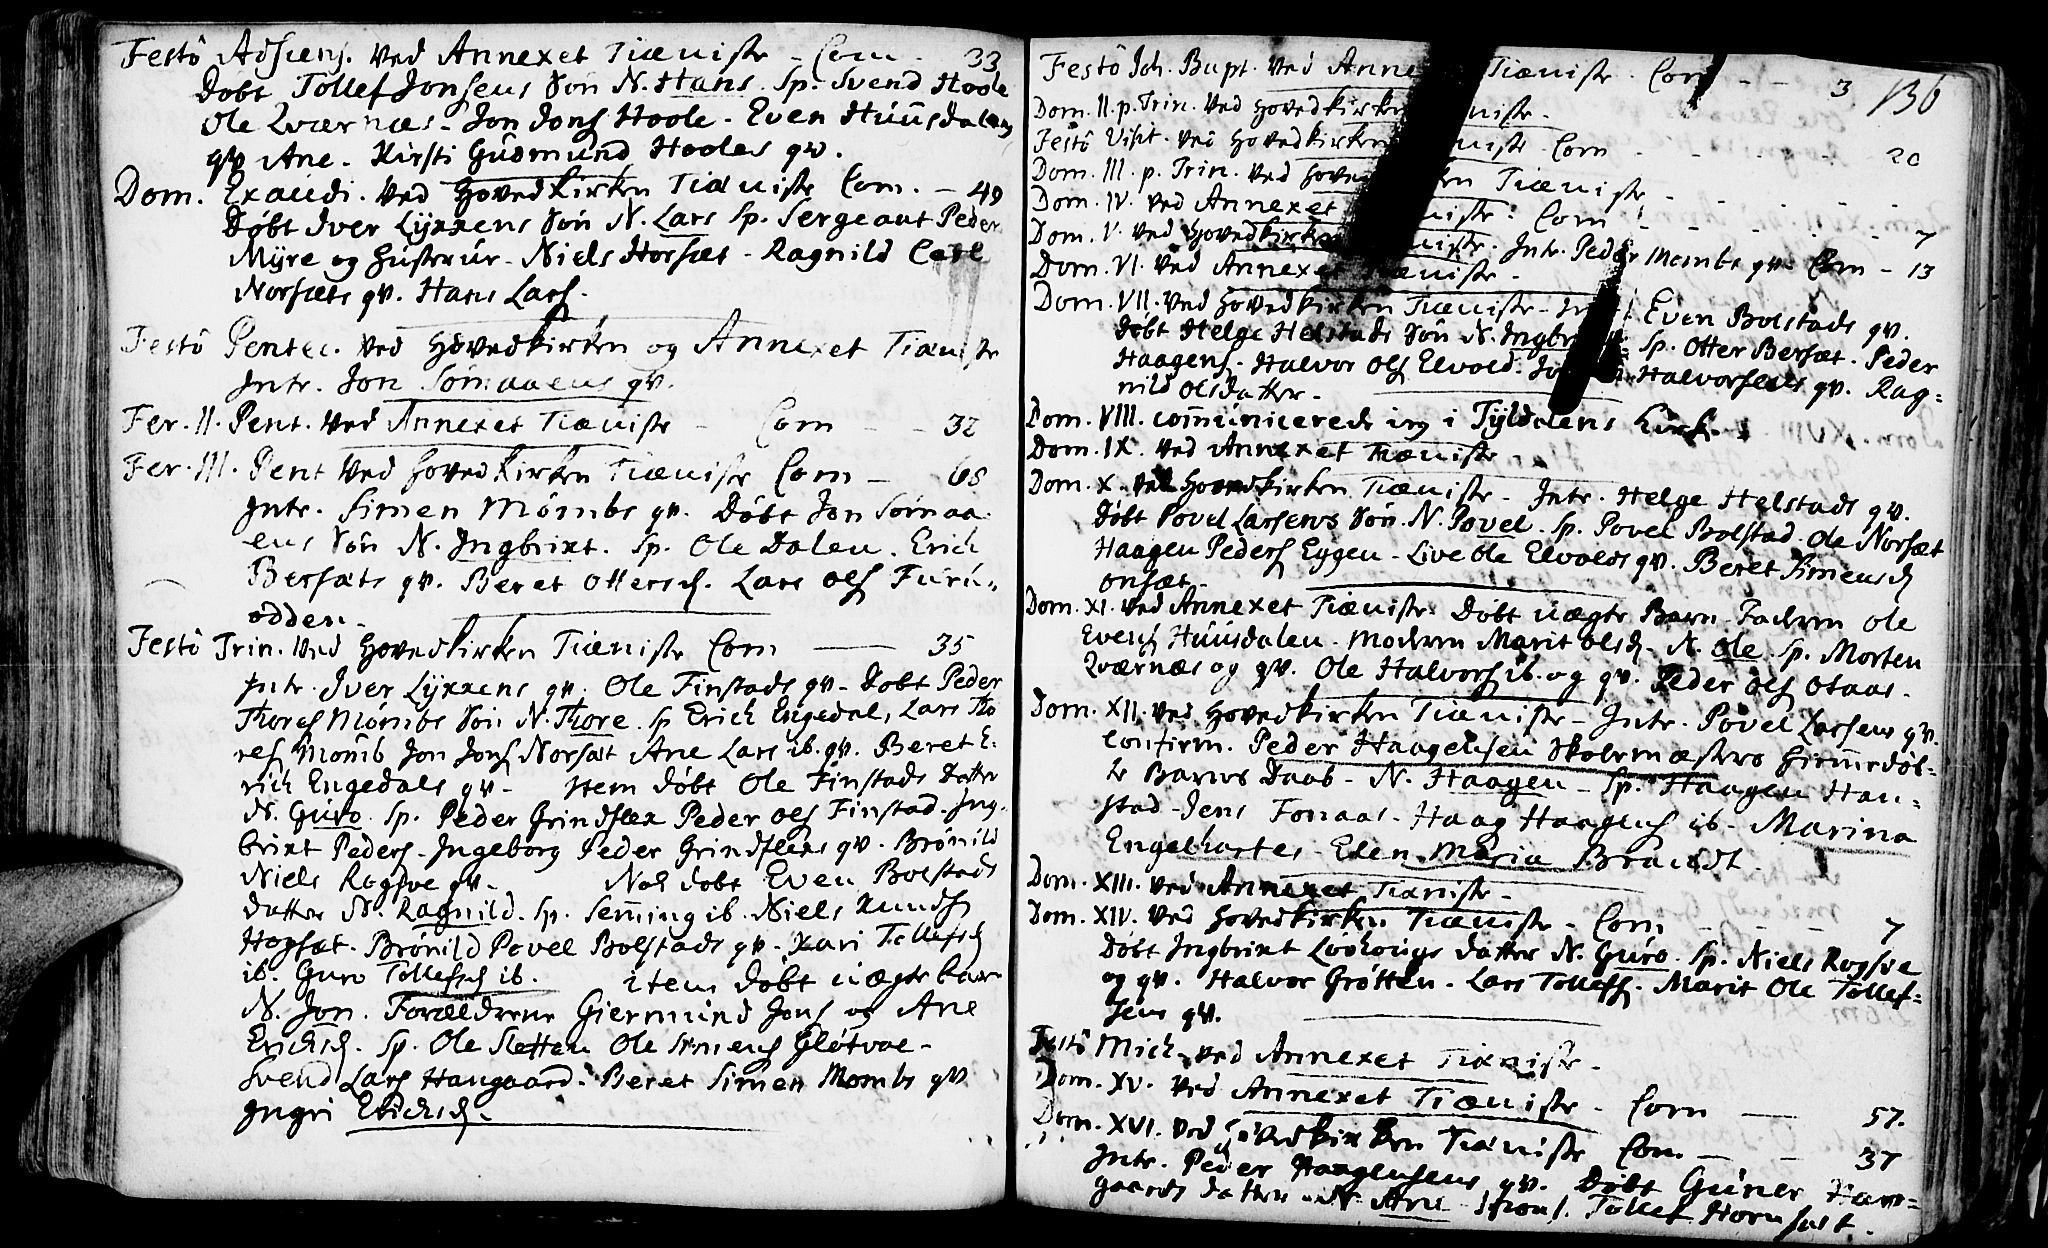 Festô Adscens. ved Annexet Tiæniste - Com - 33
Døbt Tollef Jonsens Søn N. Hans. Sp. Svend Hoole
Ole Qværnæs - Jon Jons Hoole - Even Huusdalens
qv Ane. Kirsti Gudmund Hooles qv.
Dom. Exaudi. ved Hovedkirken Tiæniste Com. - 49
Døbt Iver Lyxxens Søn N. Lars Sp. Sergeant Peder
Myre og Hustrur - Niels Horsæt - Ragnild Carl
Norsæts qv. Hans Lars.
Festô Pentec. ved Hovedkirken og Annexet Tiæniste
Intr. Jon Sømaaens qv.
Fer. II. Pent. ved Annexet Tiæniste - Com - - 32
Fer. III. Pent ved Hovedkirken Tiæniste Com - 68
Intr. Simen Mømbs qv. Døbt Jon Sømaa-
ens Søn N. Ingbrixt. Sp. Ole Dalen. Erich
Bersæts qv. Beret Ottersd. Lars Ols Furu-
odden.
Festô Trin. ved Hovedkirken Tiæniste Com - 35
Intr. Iver Lyxxens qv. Ole Finstads qv - Døbt Peder
Thores Mømbs Søn N. Thore. Sp Erich Engedal, Lars Tho
res Mømb Jon Jons Norsæt Ane Lars ib. qv. Beret E-
rich Engedals qv - Item døbt Ole Finstads Datter
N. Guro. Sp. Peder Grindflex Peder Ols Finstad. Ing-
brixt Peders - Ingeborg Peder Grindflexs qv. Brønild
Niels Rogsve qv - Nok døbt Even Bolstads
Datter N. Ragnild. Sp. Semming ib. Niels Knuds
Hogsæt. Brønild Povel Bolstads qv - Kari Tollefsd
ib. Guro Tollefsd ib. item døbt uægte barn
N. Jon. Forældrene Giermund Jons og Ane
Erichsd. Sp. Ole Sletten Ole Simens Gløtvoe -
Svend Lars Haugaard. Beret Simen Mømbs qv
Ingri Erichsd.
136
Festô Joh. Bapt. ved Anne Tiæniste. Com - - 3
Dom. II. p. Trin. ved Hovedkirken niste.
Festô Visit. ved Hovedkirken niste Com - - - 20
Dom. III. p. Trin. ved Hoved en Tiæniste
Dom. IV. ved Annexet niste. Com - - - 7
Dom. V. ved Hovedkirken niste. Intr. Peder Mømbs qv. Com - 13
Dom. VI. ved Annexet Tiæniste -
Dom. VII. ved Hovedkirken Tiæniste - Int Even Bolstads qv.
Døbt Helge Helstads Søn N. Ingbr Sp. Otter Bersæt. Peder
Haagens. Halvor Ols Elvold. Halvorsens qv. Rag-
nild Olsdatter.
Dom. VIII. communicerede ieg i Tyldalens Kirke.
Dom. IX. ved Annexet Tiæniste -
Dom. X. ved Hovedkirken Tiæniste - Intr. Helge Helstads qv.
Døbt Povel Larsens Søn. N. Povel. Sp. Povel Bolstad. Ole Norsæt
Haagen Peders Eggen - Live Ole Elvolds qv. Beret Simensd
onsæt -
Dom. XI. ved Annexet Tiæniste. Døbt uægte Barn Faderen Ole
Evens Huusdalen. Moderen Marit Olsd. N. Ole. Sp. Morten
Qværnæs og qv. Ole Halvors ib. og qv. Peder Ols Otaas.
Dom. XII. ved Hovedkirken Tiæniste - Intr. Povel Larsens qv.
Confirm. Peder Haagensen Skolemæsters Hiemmedøb-
te Barns Daab - N. Haagen - Sp. Haagen Han-
stad - Jens Fonaas - Haag Haagens ib - Marina
Engelhartes - Elen Maria Brandt.
Dom. XIII. ved Annexet Tiæniste -
Dom. XIV. ved Hovedkirken Tiæniste - Com - - - 7
Døbt Ingbrixt Lodvigs Datter N. Guro. Sp. Niels Rogsve
og qv. Halvor Grøtten. Lars Tollefs. Marit Ole Tollef-
sens qv.
Festô Mich. ved Annexet Tiæniste -
Dom. XV. ved Annexet Tiæniste - Com - 57.
Dom. XVI. ved Hovedkirken Tiæniste Com - - 37
Intr. Peder Haagensens qv. Døbt Guner Hau-
gaards Datter N. Ane Tollef Hornsæt.